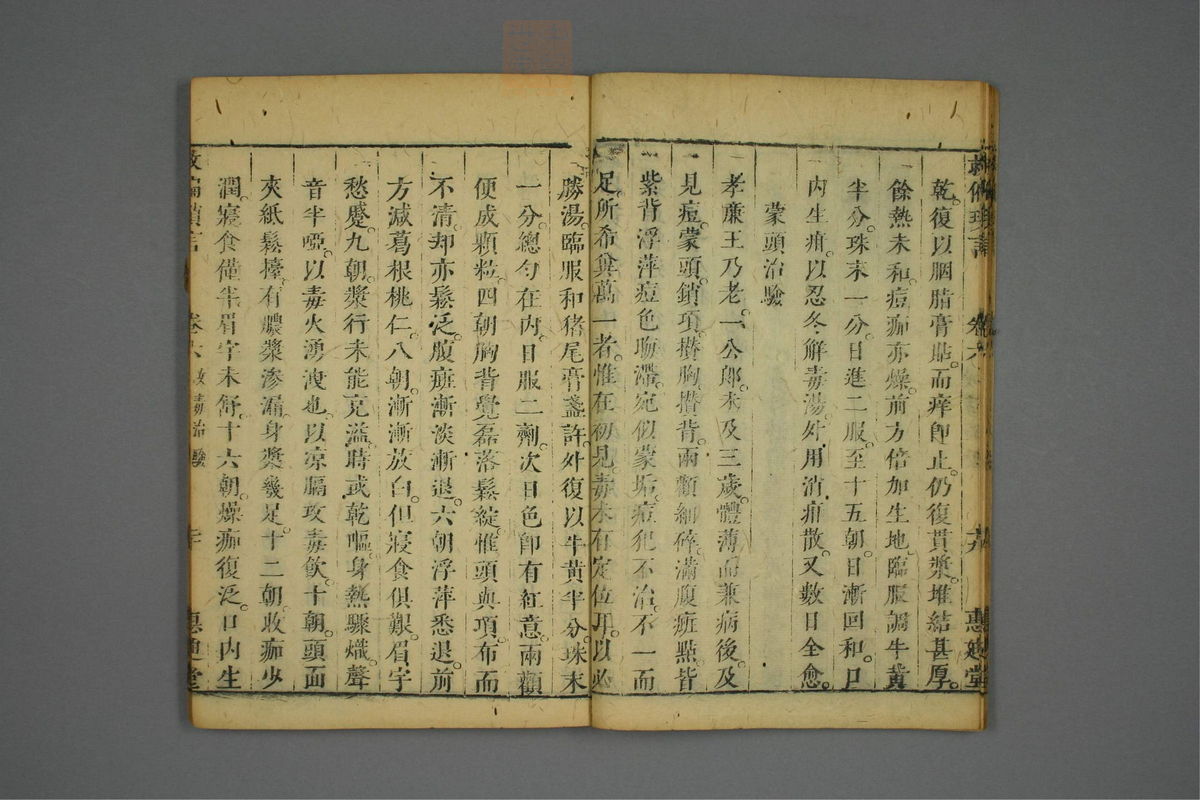 乾。復以胭脂膏貼。而痒卽止。仍復貫漿。堆結甚厚。
餘熱未和。痘痂亦燥。前方倍加生地。臨服調牛黃
半分。珠末一分。日進二服。至十五朝。日漸回和。口
內生疳。以忍冬解毒湯。外用消疳散。又數日全愈。
蒙頭治驗
孝廉王乃老。一公郎。未及三歲。體薄而兼病後。及
見痘。蒙頭。銷項。攢胸。攢背。兩顴細碎。滿腹疿點。皆
紫背浮萍。痘色晦滯。宛似蒙垢。痘犯不治。不一而
足。所希冀萬一者。惟在初見。毒未有定位耳。以必
勝湯。臨服和猪尾膏盞許。外復以牛黃半分。珠末
一分。總勻在內。日服二劑。次日色卽有紅意。兩顴
便成顆粒。四朝胸背覺磊落鬆綻。惟頭與項。布而
不清。却亦鬆泛。腹疿漸淡漸退。六朝浮萍悉退。前
方減葛根桃仁。八朝漸漸放白。但寢食俱艱。眉宇
愁蹙。九朝。漿行未能充溢。時或乾嘔。身熱驟熾。聲
音半啞。以毒火湧洩也。以凉膈攻毒飲。十朝。頭面
夾紙鬆擡。有膿漿滲漏。身漿幾足。十二朝。收痂少
潤。寢食僅半。眉宇未舒。十六朝。燥痂復泛。口內生
卷六 治驗 惠迪堂